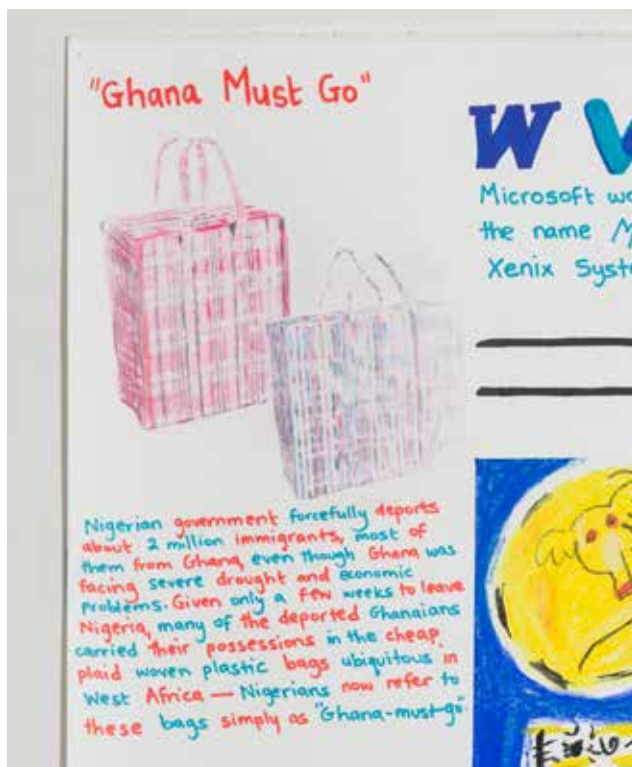 "Ghana Must Go"
Nigerian government forcefully deports
about 2 million immigrants, most of
them from Ghana, even though Ghana was
facing severe drought and economic
problems. Given only a few weeks to leave
Nigeria, many of the deported Ghanaians
carried their possessions in the cheap,
plaid woven plastic bags ubiquitous in
West Africa — Nigerians now refer to
these bags simply as "Ghana-must-go".
W
Microsoft
the name
Xenix